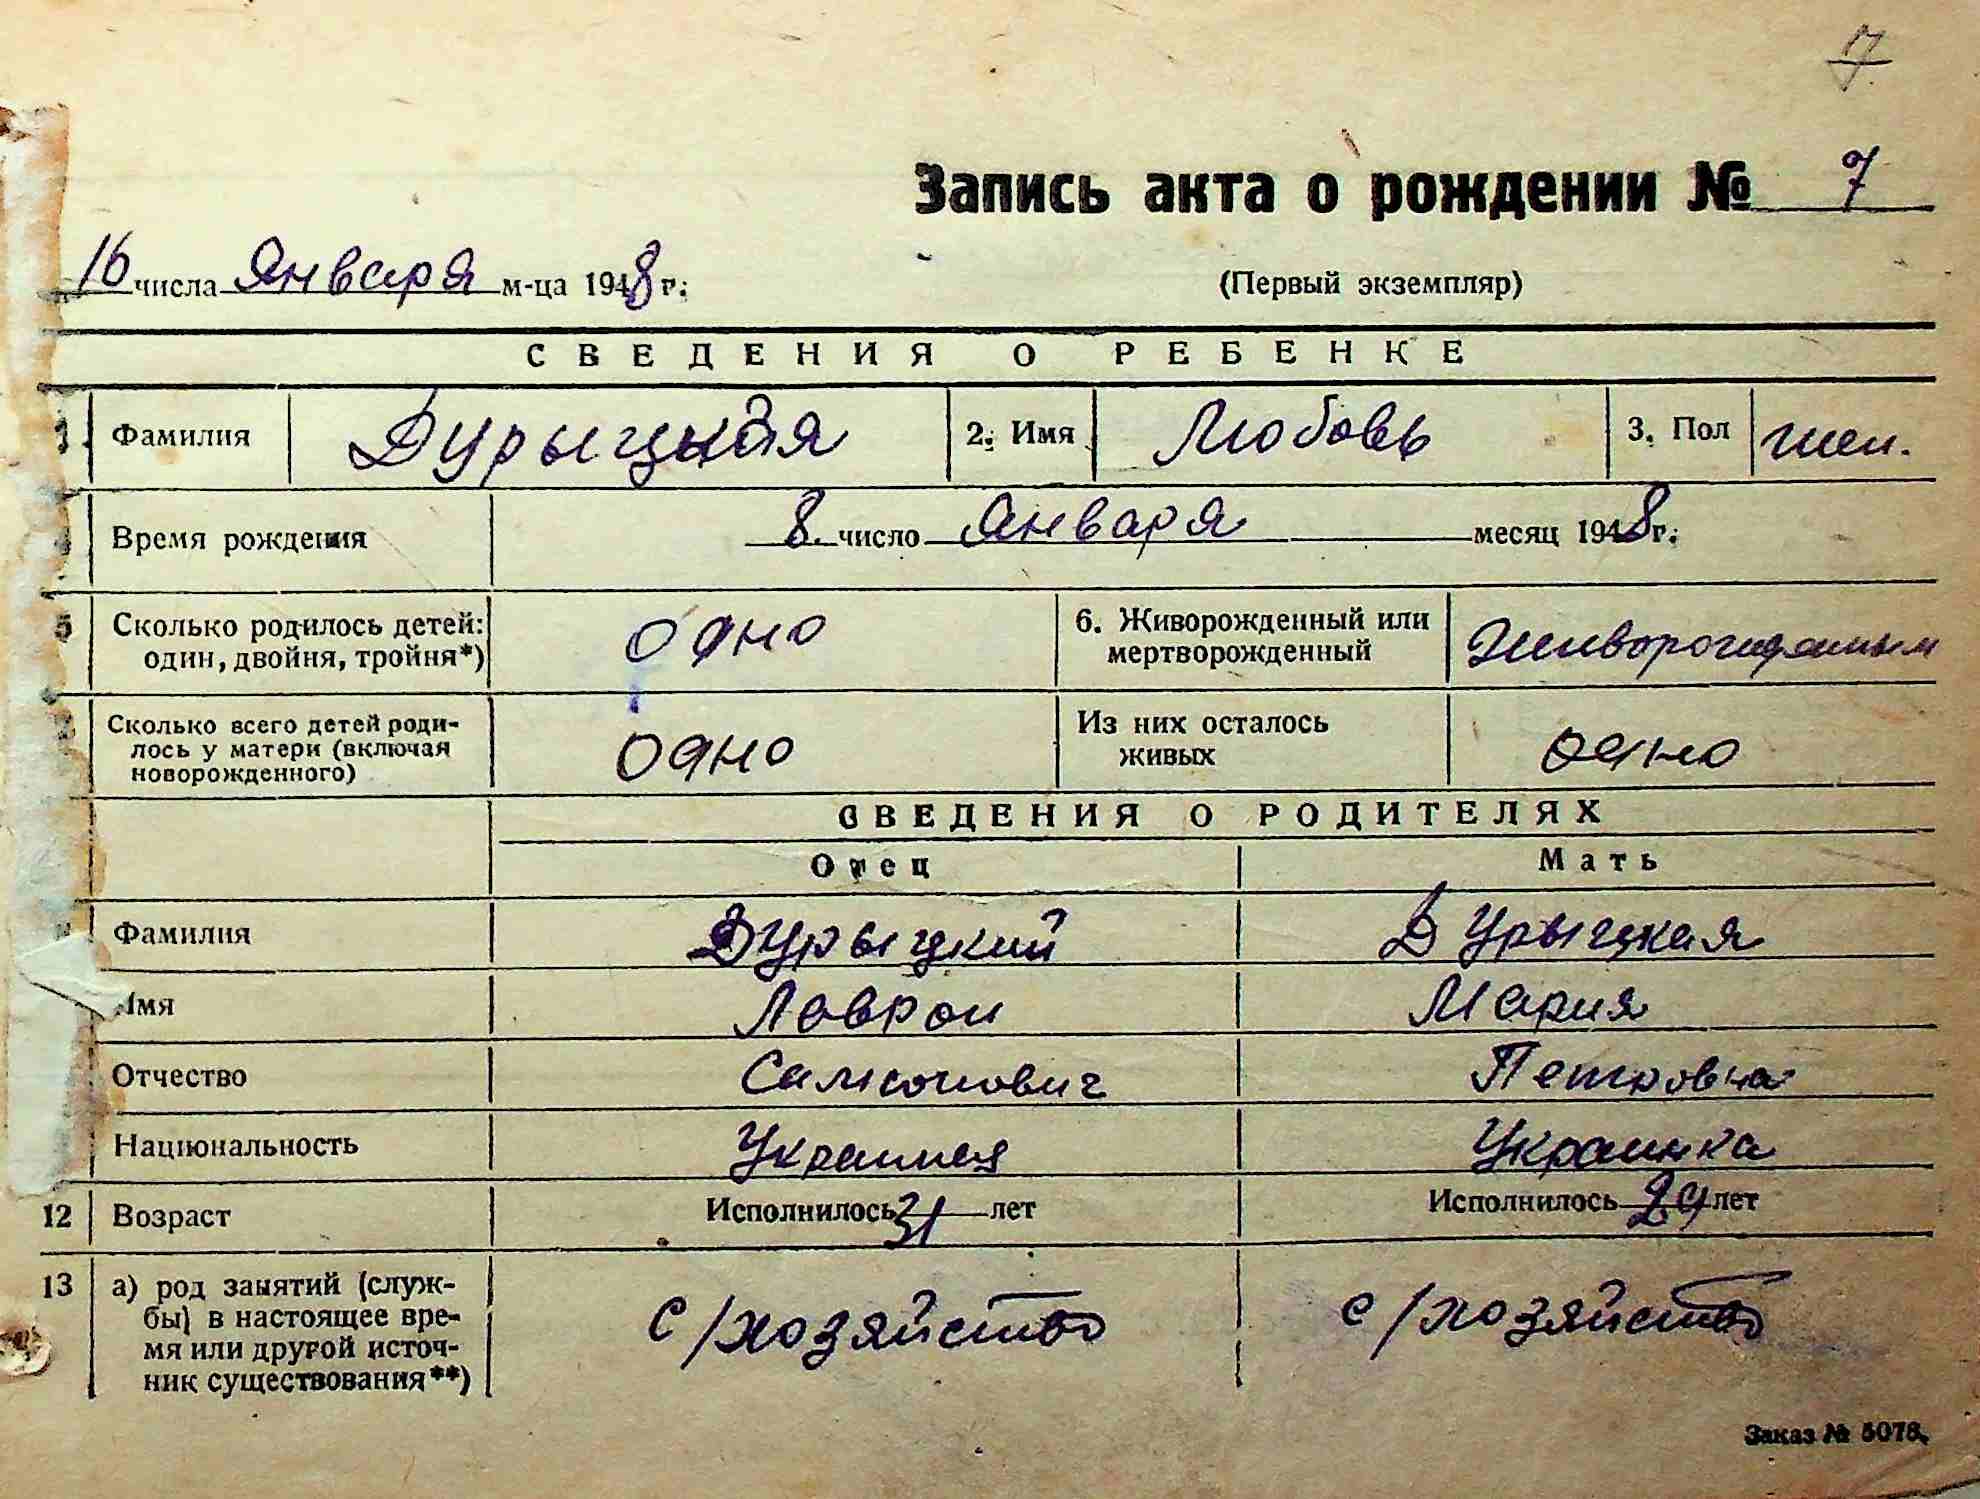 7
Запись акта о рождении № 7
16 числа Января м-ца 1948 г.
(Первый экземпляр)
СВЕДЕНИЯ О РЕБЕНКЕ
1. Фамилия Дурыцкая 2. Имя Любовь 3. Пол жен.
Время рождения 8 число Января месяц 1948 г.
5 Сколько родилось детей: один, двойня, тройня*) одно 6. Живорожденный или мертворожденный Живорожденным
Сколько всего детей родилось у матери (включая новорожденного) одно Из них осталось живых одно
СВЕДЕНИЯ О РОДИТЕЛЯХ
Отец Мать
Фамилия Дурыцкий Дурыцкая
Имя Лаврон Мария
Отчество Самсонович Петровна
Национальность Украинец Украинка
12 Возраст Исполнилось 31 лет Исполнилось 29 лет
13 а) род занятий (служ-
бы) в настоящее вре-
мя или другой источ-
ник существования**)
с/хозяйство с/хозяйство
Заказ № 5078.